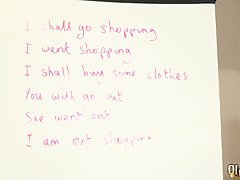 I shall go shopping
I went shopping
I shall buy some clothes
You will go out
She went out
I am out shopping